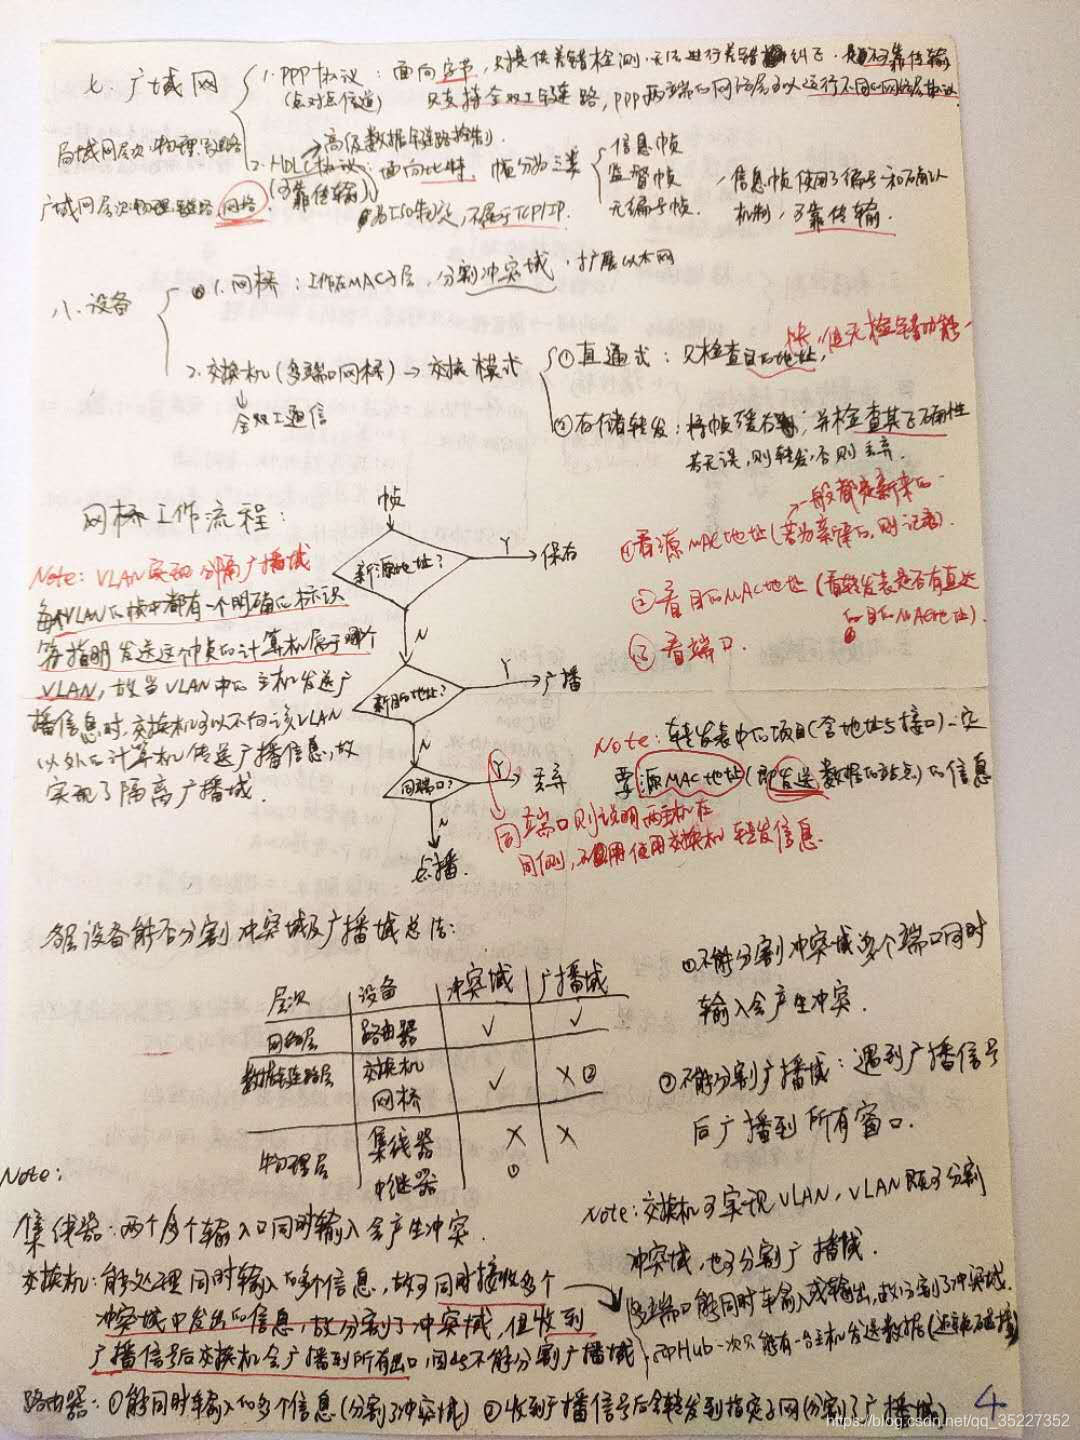 七、广域网
1. PPP协议：面向字节，只提供差错检测，无法进行差错纠正，是不可靠传输
(点对点信道) 只支持全双工链路，PPP两端的网络层可以运行不同的网络层协议
局域网层次：物理、链路
广域网层次：物理、链路、网络
→高级数据链路控制
2. HDLC协议：面向比特，帧分为三类
(可靠传输)
为ISO制定，不属于TCP/IP.
信息帧
监督帧
无编号帧.
信息帧使用了编号和确认
机制，可靠传输.
八、设备
1. 网桥：工作在MAC子层，分割冲突域，扩展以太网
2. 交换机(多端口网桥)→交换模式
全双工通信
①直通式：只检查目的地址，
快，但无检错功能
②存储转发：将帧缓存，并检查其正确性
若无误，则转发，否则丢弃.
网桥工作流程：
帧
新源地址？ Y 保存
N
新目的地址？ Y 广播
N
同端口？ Y 丢弃
N
点播.
一般都是新来的
①看源MAC地址(若为新来的，则记录).
②看目的MAC地址(看转发表是否有直达
的目的MAC地址).
③看端口.
Note：VLAN实现分隔广播域
每个VLAN的帧中都有一个明确的标识
符指明发送这个帧的计算机属于哪个
VLAN，故当VLAN中的主机发送广
播信息时，交换机可以不向该VLAN
以外的计算机传送广播信息，故
实现了隔离广播域.
Note：转发表中的项目(含地址与接口)一定
要源MAC地址(即发送数据的站点)的信息
同端口则说明两主机在
同侧，不用使用交换机转发信息.
各层设备能否分割冲突域及广播域总结：
层次 设备 冲突域 广播域
网络层 路由器 √ √
数据链路层 交换机 网桥 √ ×②
物理层 集线器 中继器 ×① ×
①不能分割冲突域：多个端口同时
输入会产生冲突.
②不能分割广播域：遇到广播信号
后广播到所有窗口.
Note：
集线器：两个多个输入口同时输入会产生冲突.
交换机：能处理同时输入的多个信息，故可同时接收多个
冲突域中发出的信息，故分割了冲突域，但收到
广播信号后交换机会广播到所有出口，因此不能分割广播域
Note：交换机可实现VLAN，VLAN既可分割
冲突域，也可分割广播域.
多端口能同时输入或输出，故分割了冲突域.
而Hub一次只能有一台主机发送数据
路由器：①能同时输入的多个信息(分割了冲突域) ②收到广播信号后会转发到指定子网(分割了广播域)
4
https://blog.csdn.net/qq_35227352